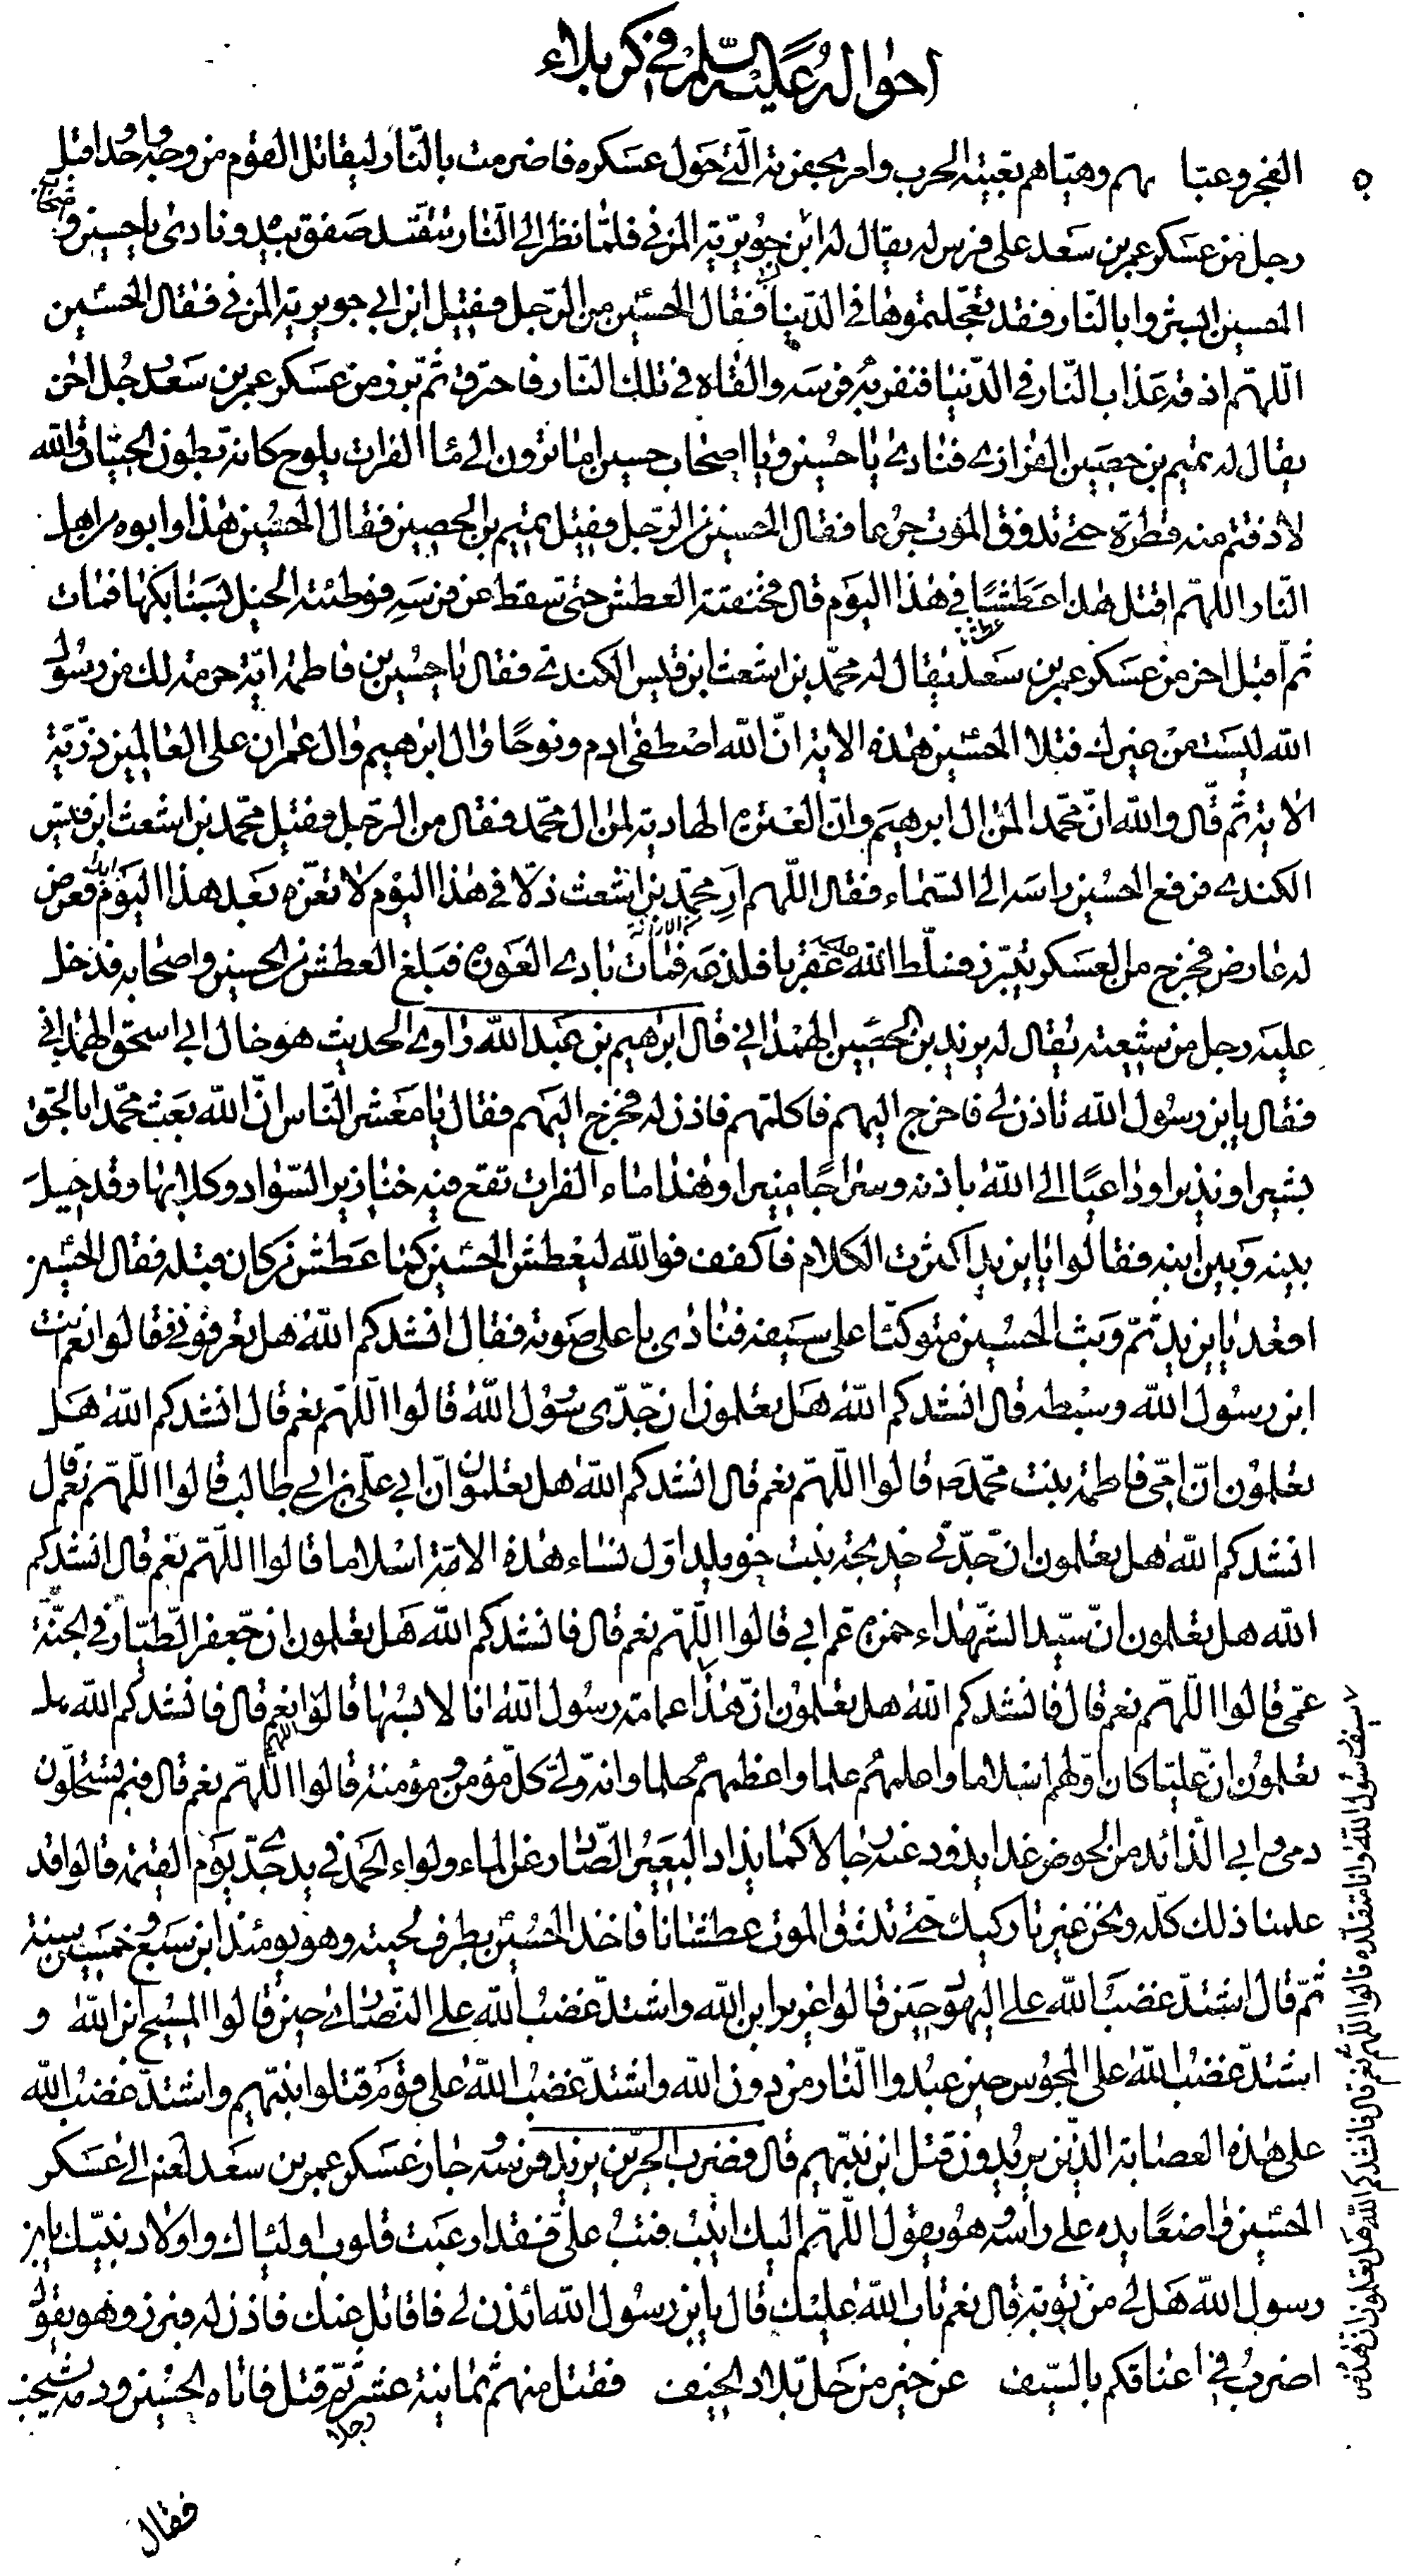 احوالہ علیہ السلم فی کربلاء
الفجر وعبّا هم وهيّاهم تعبية الحرب وامر بحفيرته التے حول عسكره فاضرمت بالنّار ليقاتل القوم من وجه واحد واقبل
رجل من عسكر عمر بن سعد على فرس له يقال له ابن جويرية المزنے فلمّا نظر الى النّار تتّقد صفق بيده ونادى ياحسين واصحاب
الحسين ابشروا بالنّار فقد تعجّلتموها فى الدّنيا فقال الحسين من الرّجل فقيل ابن ابي جويرية المزنے فقال الحسين
اللّهم اذقه عذاب النّار فى الدّنيا فنفر به فرسه والقاه فى تلك النّار فاحترق ثمّ برز من عسكر عمر بن سعد رجل اخر
يقال له تميم بن حصين الفزارے فنادى ياحسين ويا اصحاب حسين اما ترون الى ماء الفرات يلوح كانه بطون الحيتان والله
لا ذقتم منه قطرة حتے تذوقوا الموت جزعا فقال الحسين من الرّجل فقيل تميم بن الحصين فقال الحسين هذا وابوه من اهل
النّار اللّهم اقتل هذا عطشا فى هذا اليوم قال فخنقته العطش حتى سقط عن فرسه فوطئته الخيل بسنابكها فمات
عطشا
ثم اقبل اخر من عسكر عمر بن سعد يقال له محمّد بن اشعث ابن قيس الكندے فقال ياحسين بن فاطمة اية حرمة لك من رسول
الله ليست من غيرك فتلا الحسين هذه الاية انّ الله اصطفى ادم ونوحا وال ابرهيم وال عمران على العالمين ذرّيّة
الاية ثمّ قال والله انّ محمّدا لمن ال ابرهيم وانّ العترة الهادية لمن ال محمّد فقال من الرّجل فقيل محمّد بن اشعث ابن قيس
الكندے فرفع الحسين راسه الى السّماء فقال اللّهم ارِ محمّد بن اشعث ذلّا فى هذا اليوم لا تعزّه بعد هذا اليوم ابدا فعرض
له عارض فخرج من العسكر يتبرّز فسلّط الله عليه عقربا فلذعه فمات بادے العورة فبلغ العطش من الحسين واصحابه فدخل
عليه رجل من شيعته يقال له يزيد بن الحصين الهمدانے قال ابرهيم بن عبد الله راوى الحديث هو خال ابي اسحق الهمدانے
فقال يابن رسول الله تاذن لے فاخرج اليهم فاكلمهم فاذن له فخرج اليهم فقال يا معشر النّاس انّ الله بعث محمّدا بالحقّ
بشيرا ونذيرا وداعيا الى الله باذنه وسراجا منيرا وهذا ماء الفرات تقع فيه خنازير السّواد وكلابها وقد حيل
بينه وبين ابنه فقالوا يا يزيد اكثرت الكلام فاكفف فوالله ليعطش الحسين كما عطش من كان قبله فقال الحسين
اقعد يا يزيد ثمّ وثب الحسين متوكّئا على سيفه فنادى باعلى صوته فقال انشدكم الله هل تعرفونے فقالوا نعم انت
ابن رسول الله وسبطه قال انشدكم الله هل تعلمون ان جدّى رسول الله قالوا اللّهم نعم قال انشدكم الله هل
تعلمون انّ امّى فاطمة بنت محمّد ص قالوا اللّهم نعم قال انشدكم الله هل تعلمون انّ ابي علّى بن ابي طالب قالوا اللّهم نعم قال
انشدكم الله هل تعلمون ان جدّتے خديجة بنت خويلد اوّل نساء هذه الامّة اسلاما قالوا اللّهم نعم قال انشدكم
الله هل تعلمون انّ سيّد الشّهداء حمزة عم ابي قالوا اللّهم نعم قال فانشدكم الله هل تعلمون ان جعفر الطّيّار فى الجنّة
عمّى قالوا اللّهم نعم قال فانشدكم الله هل تعلمون انّ هذا عمامة رسول الله انا لابسها قالوا اللهم نعم قال فانشدكم الله هل
تعلمون انّ عليّا كان اوّلهم اسلاما واعلمهم علما واعظمهم حلما وانه ولّى كلّ مؤمن ومؤمنة قالوا اللّهم نعم قال فبم تستحلّون
دمى وابي الذّائد من الحوض غدا يذود عنه رجالا كما يذاد البعير الصّادر عن الماء ولواء الحمد فى يد جدّے يوم القيمة قالوا قد
علمنا ذلك كلّه ونحن غير تاركيك حتے تذوق الموت عطشانا فاخذ الحسين بطرف لحيته وهو يومئذ ابن سبع وخمسين سنة
ثمّ قال اشتدّ غضب الله على اليهود حين قالوا عزير ابن الله واشتدّ غضب الله على النّصارى حين قالوا المسيح ابن الله و
اشتدّ غضب الله على المجوس حين عبدوا النّار من دون الله واشتدّ غضب الله على قوم قتلوا نبيّهم واشتدّ غضب الله
على هذه العصابة الذّين يريدون قتل ابن نبيّهم قال فضرب الحرّ بن يزيد فرسه وجاز عسكر عمر بن سعد لعنه الى عسكر
الحسين واضعا يده على راسه وهو يقول اللّهم اليك انيب فتب علىّ فقد ارعبت قلوب اوليائك واولاد نبيّك يابن
رسول الله هل لى من توبة قال نعم تاب الله عليك قال يابن رسول الله ائذن لے فاقاتل عنك فاذن له فبرز وهو يقول
اضرب فى اعناقكم بالسّيف عن خير من حلّ بلاد الخيف فقتل منهم ثمانية عشر رجلا ثمّ قتل فاتاه الحسين ودمه يشخب
فقال
سيف رسول الله وانا متقلّده قالوا اللّهم نعم قال فانشدكم الله هل تعلمون ان هذا ص